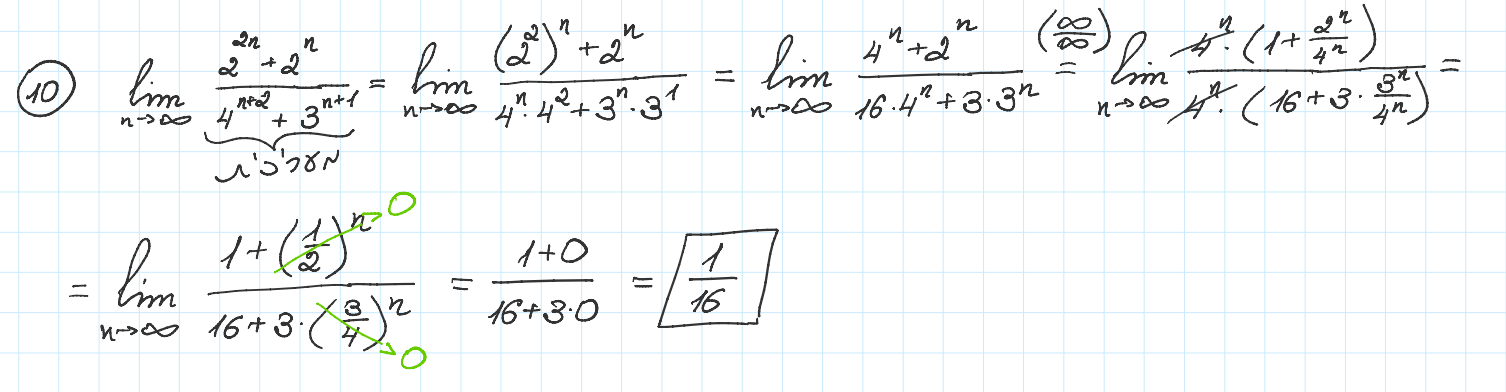 (10) lim_{n→∞} (2^{2n} + 2^n)/(4^{n+2} + 3^{n+1}) = lim_{n→∞} ((2^2)^n + 2^n)/(4^n · 4^2 + 3^n · 3^1) = lim_{n→∞} (4^n + 2^n)/(16 · 4^n + 3 · 3^n) =^{(∞/∞)} lim_{n→∞} (4^n · (1 + 2^n/4^n))/(4^n · (16 + 3 · 3^n/4^n)) =
מעריכי
= lim_{n→∞} (1 + (1/2)^n → 0)/(16 + 3 · (3/4)^n → 0) = (1 + 0)/(16 + 3 · 0) = 1/16